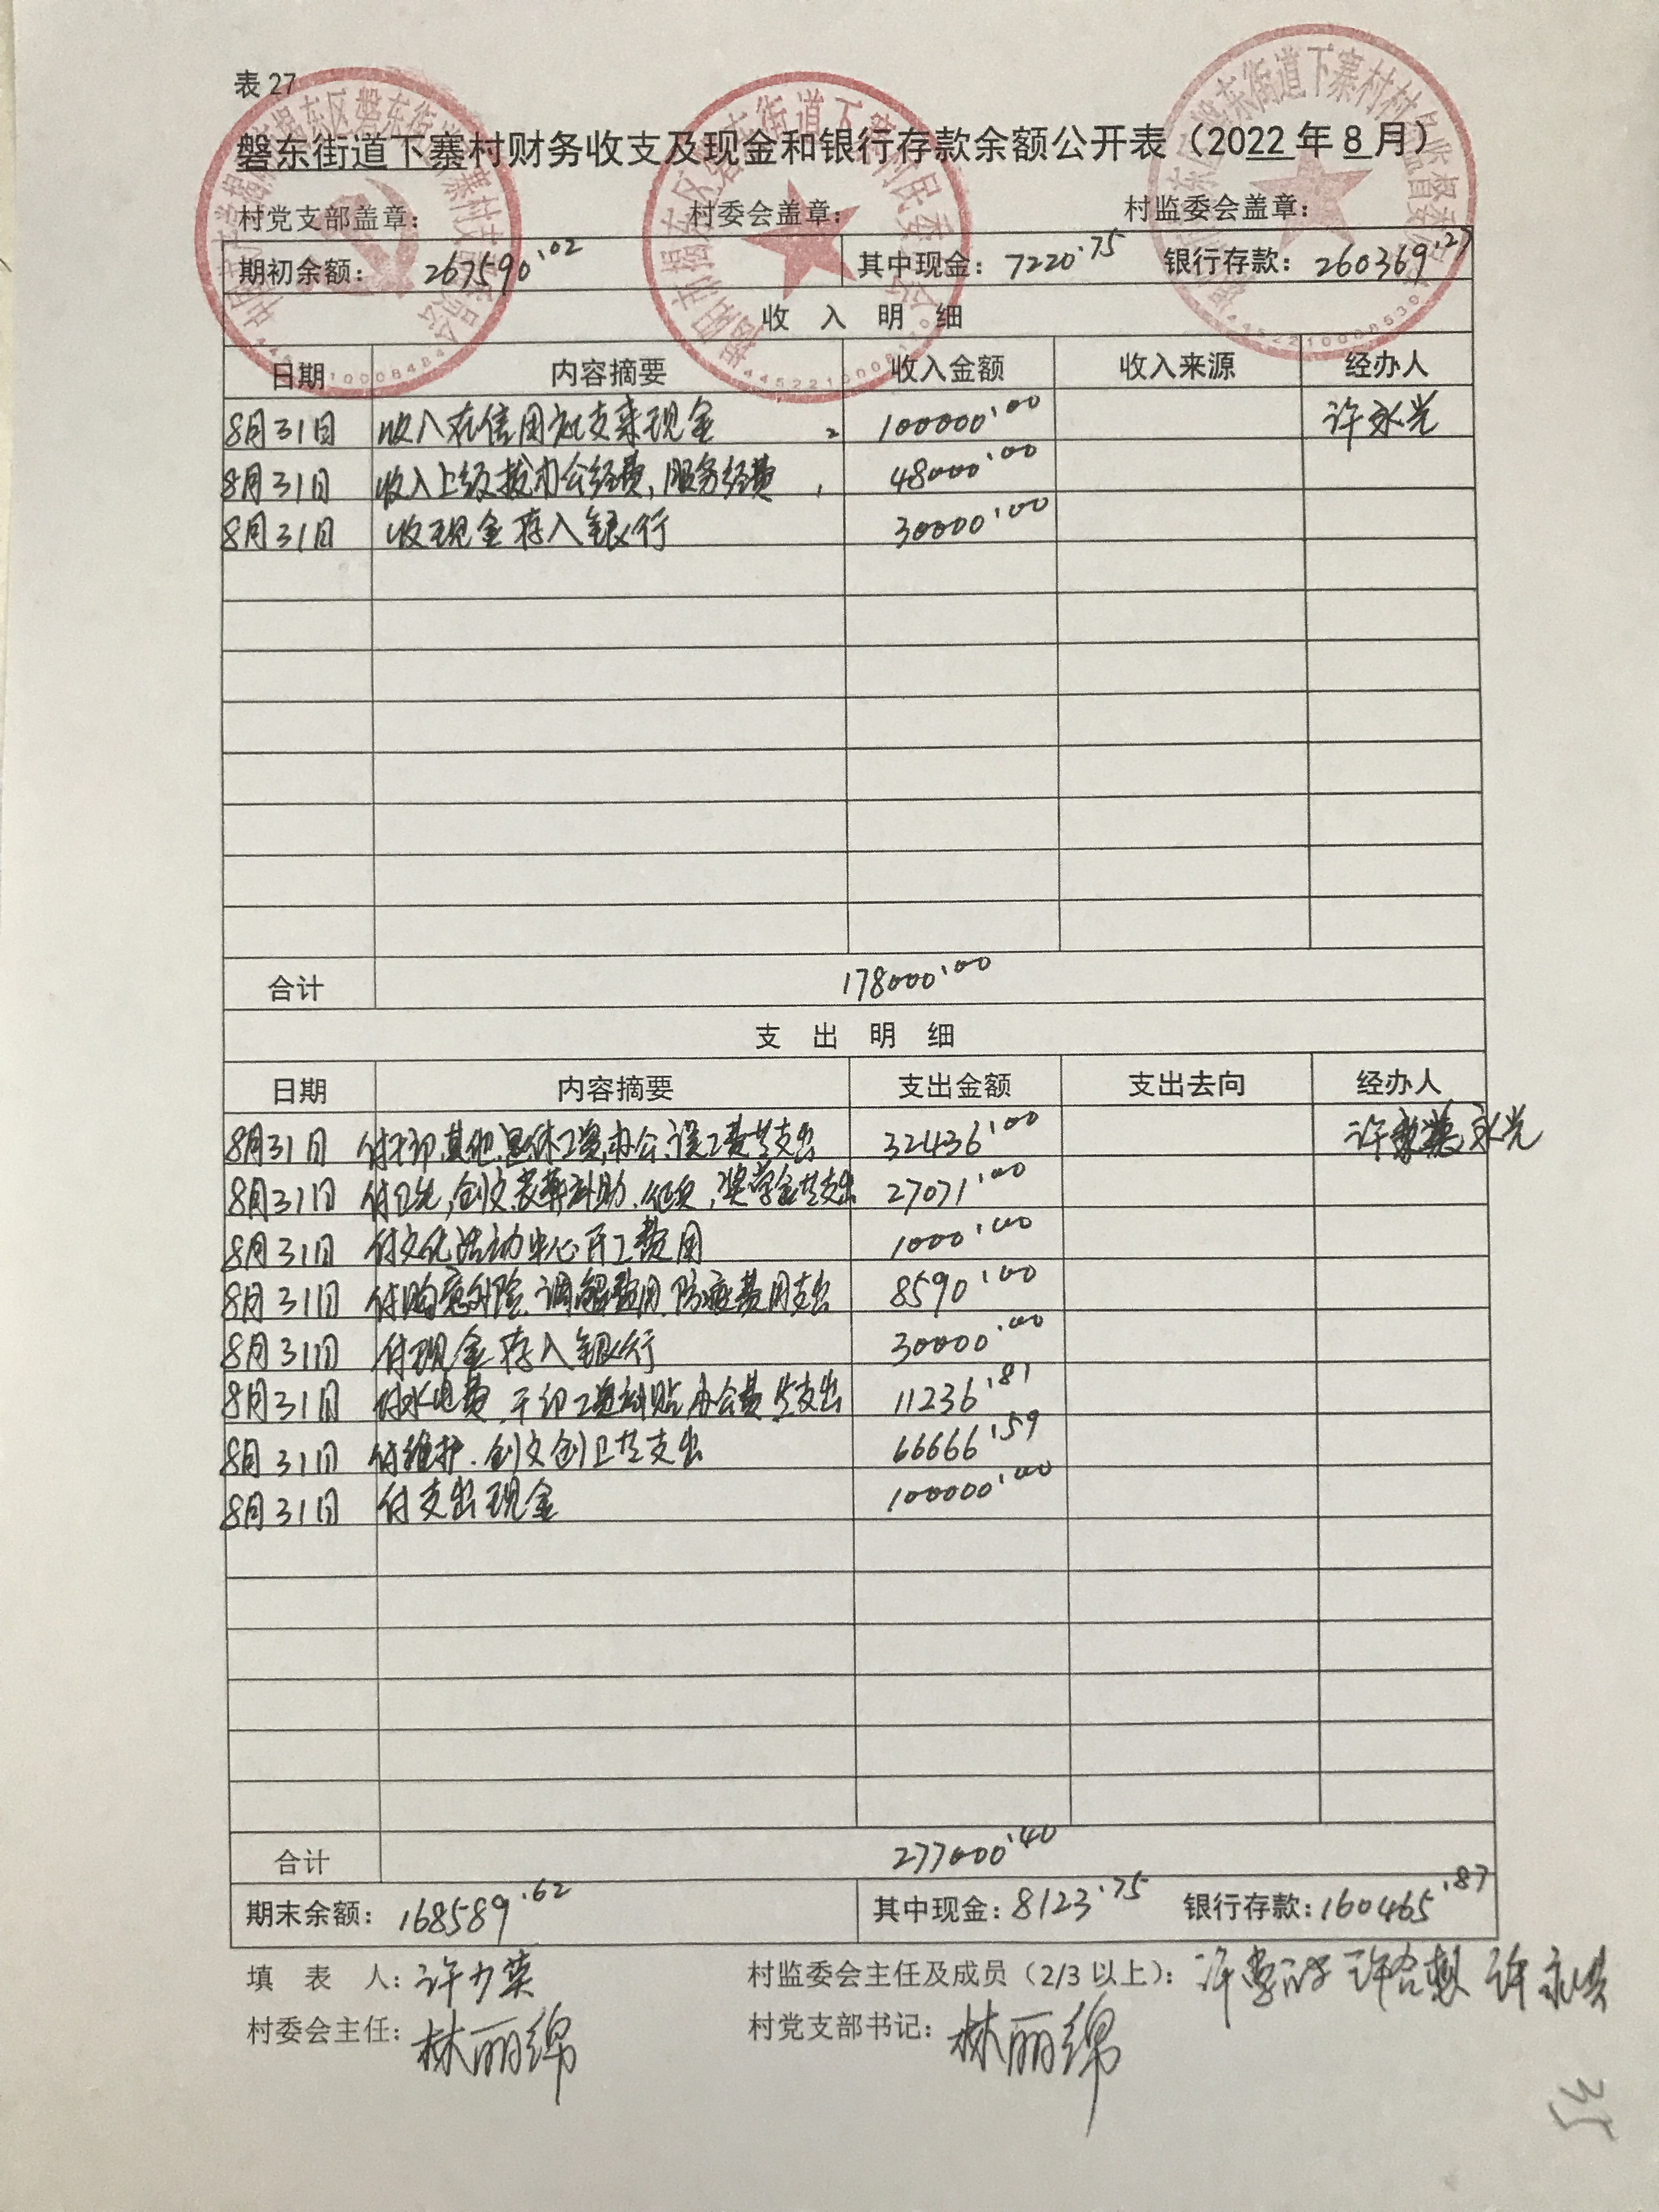 表 27
磐东街道下寨村财务收支及现金和银行存款余额公开表（2022 年 8 月）
村党支部盖章： 村委会盖章： 村监委会盖章：
期初余额： 267590.02 其中现金：7220.75 银行存款：260369.27
收 入 明 细
日期 内容摘要 收入金额 收入来源 经办人
8月31日 收入在信用社支来现金 100000.00 许永光
8月31日 收入上级拨办公经费，服务经费 48000.00
8月31日 收现金存入银行 30000.00
合计 178000.00
支 出 明 细
日期 内容摘要 支出金额 支出去向 经办人
8月31日 付干部、其他、退休工资、办公、误工费共支出 32436.00 许永光
8月31日 付卫生，创文，丧葬补助，奖学金共支出 27071.00
8月31日 付文化活动中心开工费用 1000.00
8月31日 付购意外险、调解费用、防疫费用支出 8590.00
8月31日 付现金存入银行 30000.00
8月31日 付水电费、干部工资补贴、办公费共支出 11236.81
8月31日 付维护、创文创卫共支出 66666.59
8月31日 付支出现金 100000.00
合计 277000.40
期末余额：168589.62 其中现金：8123.75 银行存款：160465.87
填 表 人：许少英 村监委会主任及成员（2/3 以上）：
村委会主任：林丽绵 村党支部书记：林丽绵